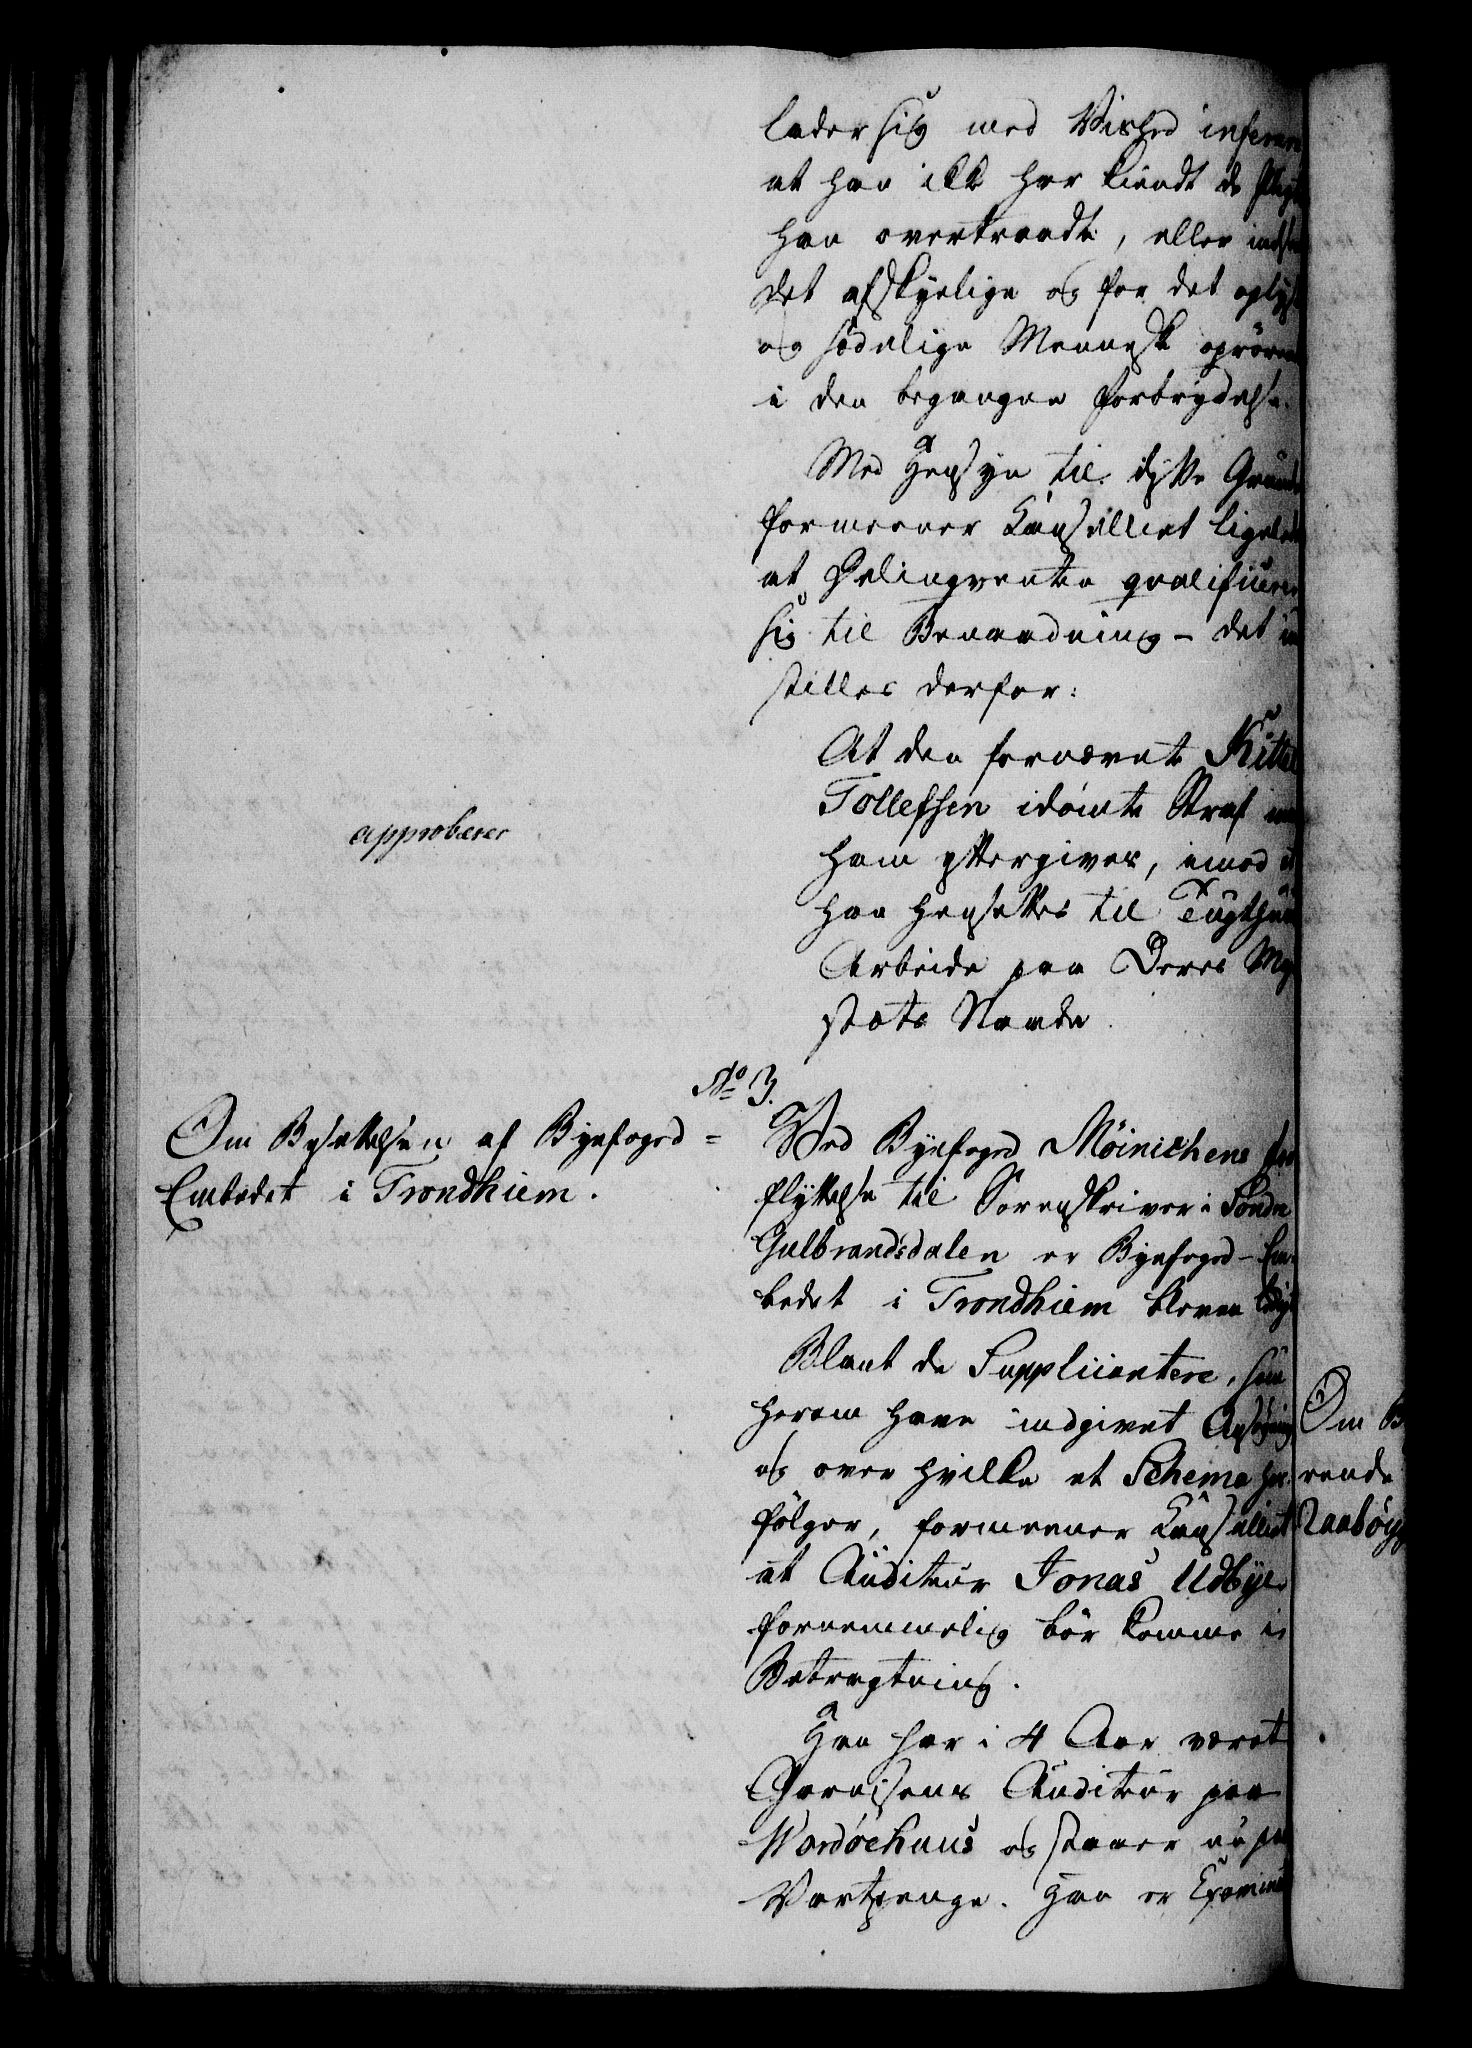 lader sig med Vished inferere
at han ikke har kiendt de Pligt
han overtraadte, eller indseet
det afskyelige og for det oplyst
og sædelige Menneske oprørend
i den begangne Forbrydelse.
Med Hensyn til disse Grunde
formeener Cancelliet ligeled
at Delinqventen qvalificerer
sig til Benaadning - det ind
stilles derfor:
At den fornævnte Kittel
Tollefsen idømte Straf maa
ham eftergives, imod at
han hensettes til Tugthuus
Arbeide paa Deres Maj
estæts Naade.
approberes
No 3.
Om Besættelsen af Byefoged-
Embedet i Trondhiem.
Ved Byefoged Møinichens For
flyttelse til Sorenskriver i Søndre
Gulbrandsdalen er Byefoged-Em-
bedet i Trondhiem bleven ledigt
Blant de Supplicantere, som
herom have indgivet Ansøgning
og over hvilke et Schema her
følger, formeener Cancelliet
at Auditeur Jonas Udbye
fornemmelig bør komme i
Betragtning.
Han har i 4 Aar været
Garnisons Auditeur paa
Wardøehuus og staaer nu paa
Vartpenge. Han er Examine
Om B
rende
Raabøyg